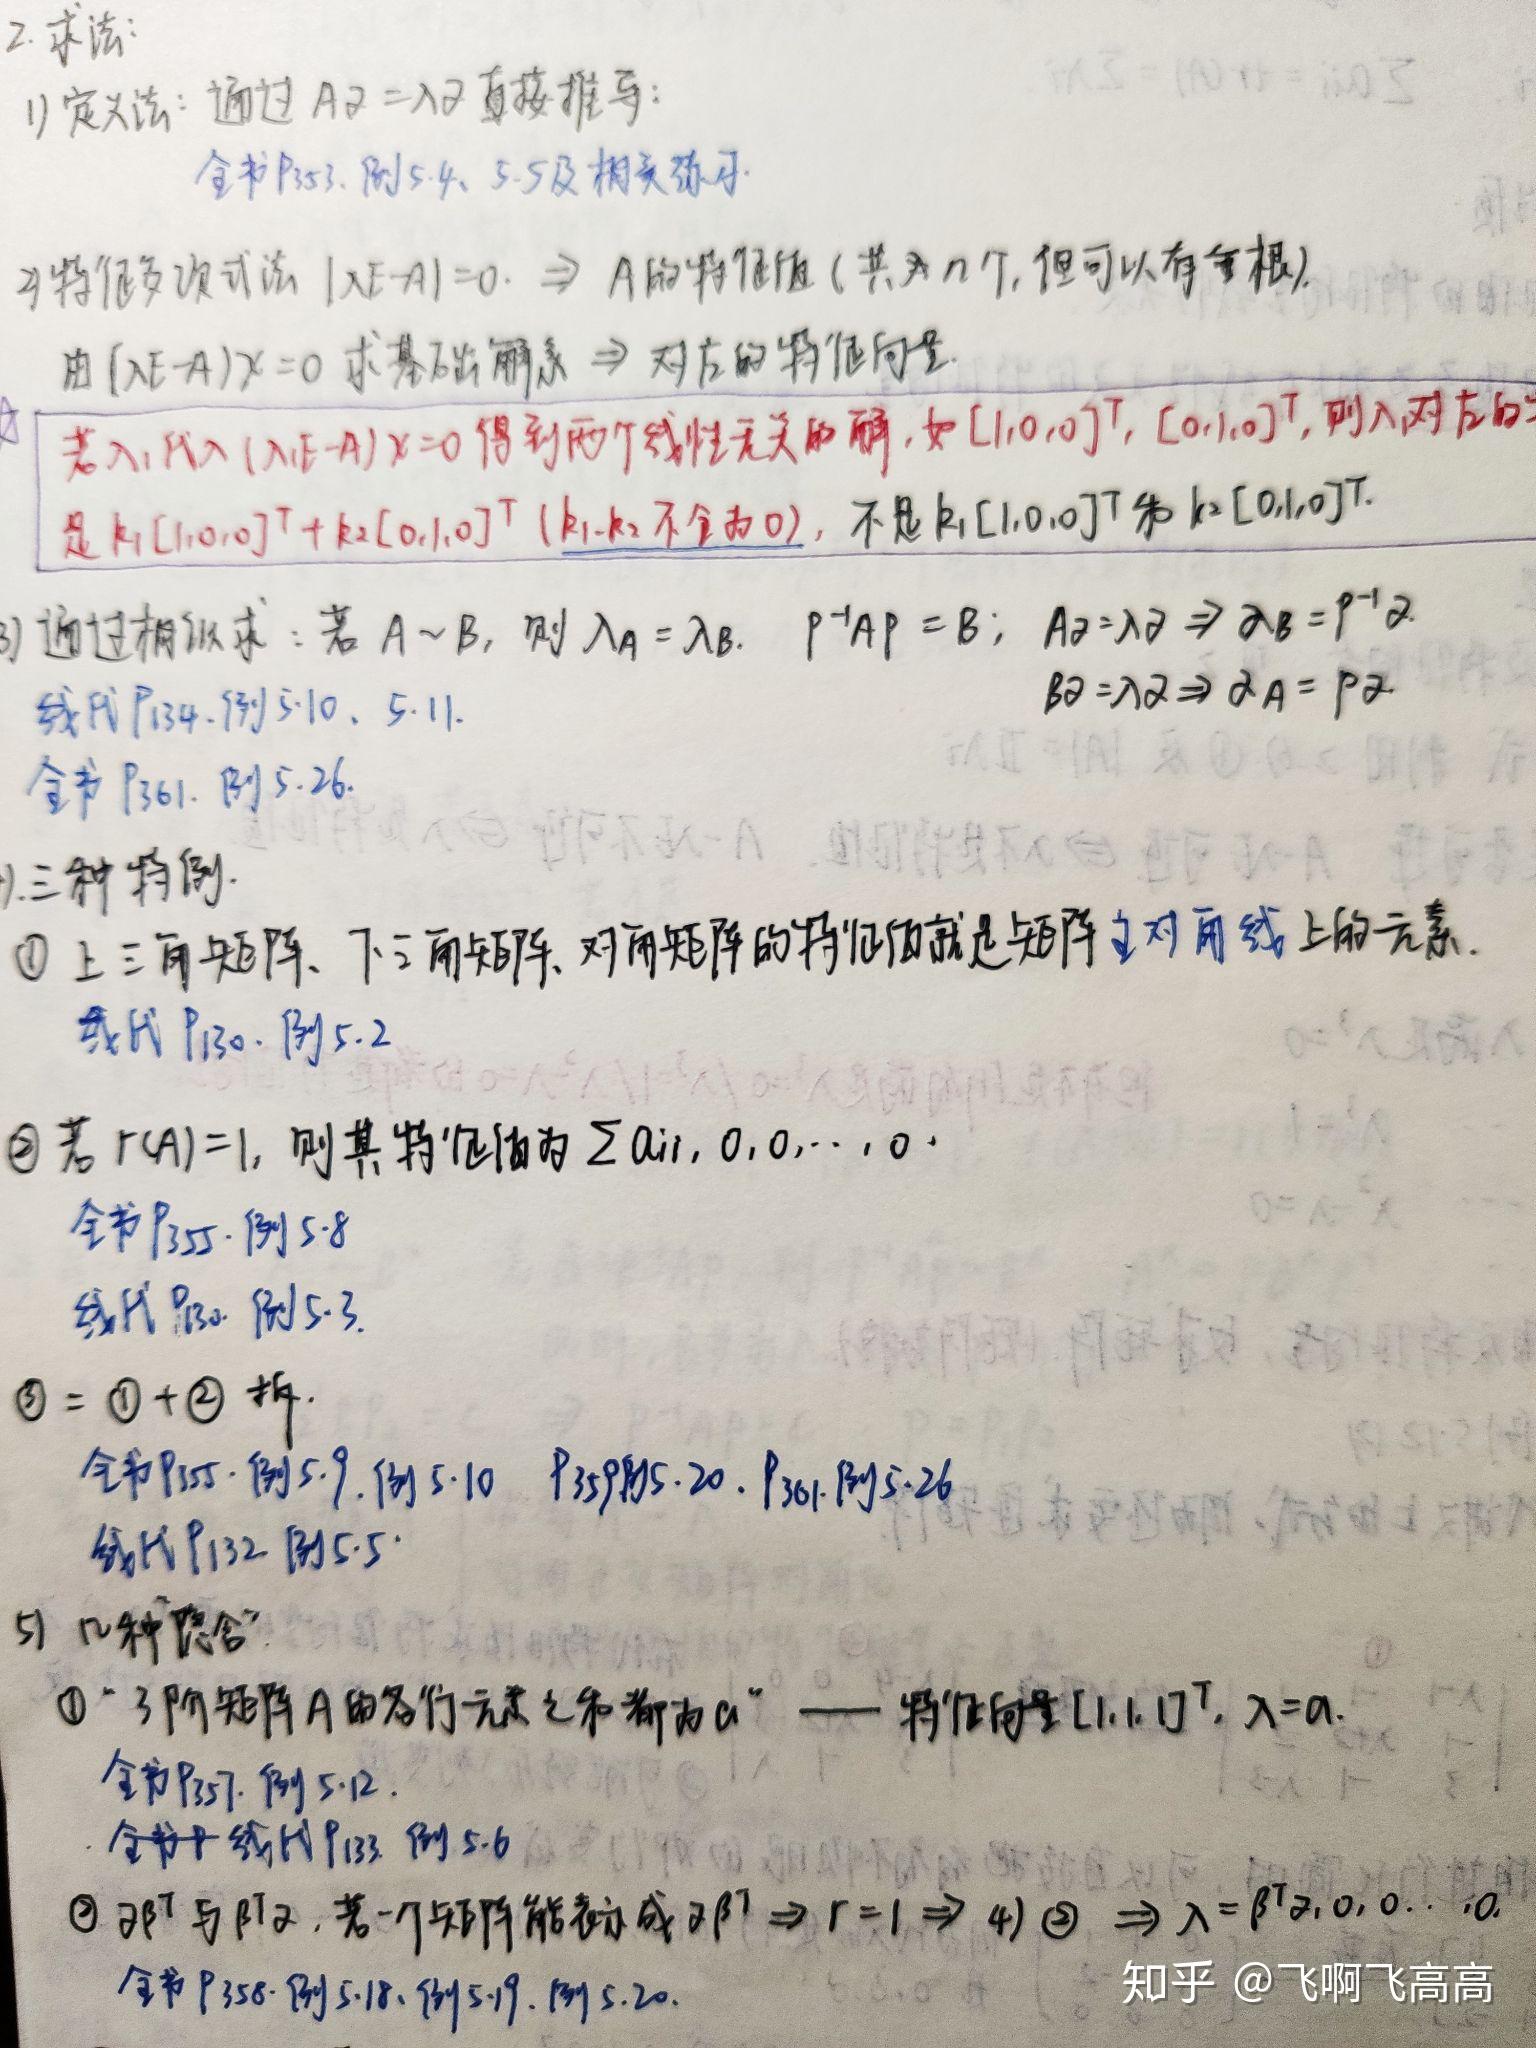 2. 求法:
1) 定义法: 通过 Aα=λα 直接推导:
全书P353. 例5.4、5.5及相关练习.
2) 特征多项式法 |λE-A|=0. ⇒ A的特征值(共有n个, 但可以有重根).
由(λE-A)x=0 求基础解系 ⇒ 对应的特征向量.
若λ₁代入(λ₁E-A)x=0得到两个线性无关的解, 如[1,0,0]ᵀ, [0,1,0]ᵀ, 则λ₁对应的
是k₁[1,0,0]ᵀ+k₂[0,1,0]ᵀ (k₁、k₂不全为0), 不是k₁[1,0,0]ᵀ和k₂[0,1,0]ᵀ.
3) 通过相似求: 若A~B, 则λA=λB. P⁻¹AP=B; Aα=λα ⇒ αB=P⁻¹α.
Bα=λα ⇒ αA=Pα.
线代P134. 例5.10、5.11.
全书P361. 例5.26.
). 三种特例.
① 上三角矩阵、下三角矩阵、对角矩阵的特征值就是矩阵主对角线上的元素.
线代P130. 例5.2
② 若r(A)=1, 则其特征值为∑aii, 0, 0, ..., 0.
全书P355. 例5.8
线代P130. 例5.3.
③ = ①+② 拆.
全书P355. 例5.9. 例5.10 P359例5.20. P361. 例5.26
线代P132 例5.5.
5) 几种"隐含".
① "3阶矩阵A的各行元素之和都为a" —— 特征向量[1,1,1]ᵀ, λ=a.
全书P357. 例5.12.
全书P 线代P133. 例5.6
② αβᵀ与βᵀα, 若一个矩阵能表示成αβᵀ ⇒ r=1 ⇒ 4) ② ⇒ λ=βᵀα, 0, 0..., 0.
全书P358. 例5.18、例5.19. 例5.20.
知乎 @飞啊飞高高